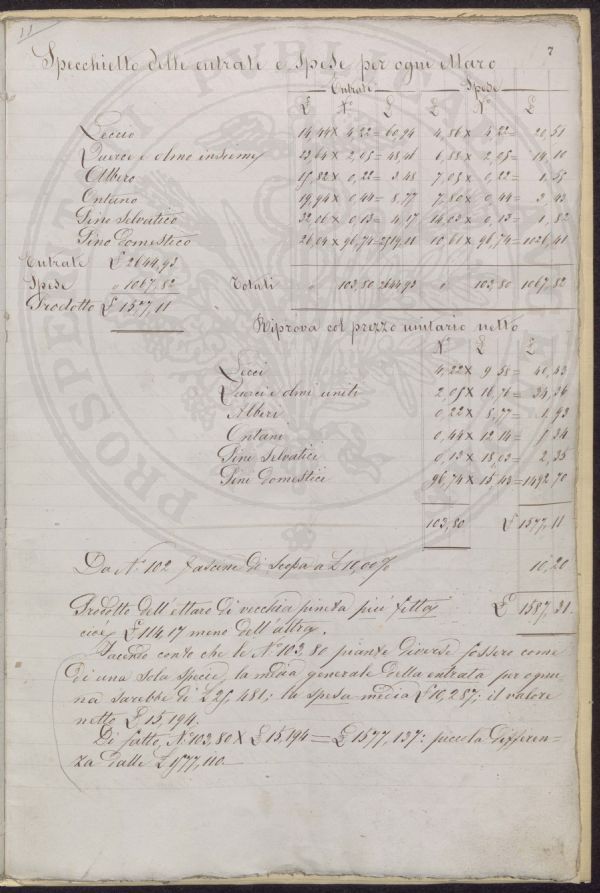 11
7
Specchietto delle entrate e Spese per ogni ettaro
Entrate Spese
£ N.° £ £ N.° £
Leccio 14,44 × 4,22 = 60,94 4,86 × 4,22 = 20,51
Querci e olmo insieme 23,64 × 2,05 = 48,46 6,88 × 2,05 = 14,10
Albero 15,82 × 0,22 = 3,48 7,05 × 0,22 = 1,55
Ontano 19,94 × 0,44 = 8,77 7,80 × 0,44 = 3,43
Pino Selvatico 32,06 × 0,13 = 4,17 14,03 × 0,13 = 1,82
Pino Domestico 26,04 × 96,74 = 2519,11 10,61 × 96,74 = 1026,41
Entrate £ 2644,93
Spese " 1067,82 Totali " 103,80 2644,93 " 103,80 1067,82
Prodotto £ 1577,11
Riprova col prezzo unitario netto
N.° £ £
Lecci 4,22 × 9,58 = 40,43
Querci e olmi uniti 2,05 × 16,76 = 34,36
Alberi 0,22 × 8,77 = 1,93
Ontani 0,44 × 12,14 = 5,34
Pini Selvatici 0,13 × 18,03 = 2,35
Pini Domestici 96,74 × 15,43 = 1492,70
103,80 £ 1577,11
Da N.° 102 fascine di Scopa a £ 10,00 % 10,20
Prodotto dell'ettaro di vecchia pineta più fitta £ 1587,31
cioè £ 114,07 meno dell'altra.
Facendo conto che le N.° 103,80 piante diverse fossero come
di una sola specie, la media generale della entrata per ognu-
na sarebbe di £ 25,481; la spesa media £ 10,287; il valore
netto £ 15,194.
Di fatto, N.° 103,80 × £ 15,194 = £ 1577,137: piccola differen-
za dalle £ 1577,110.